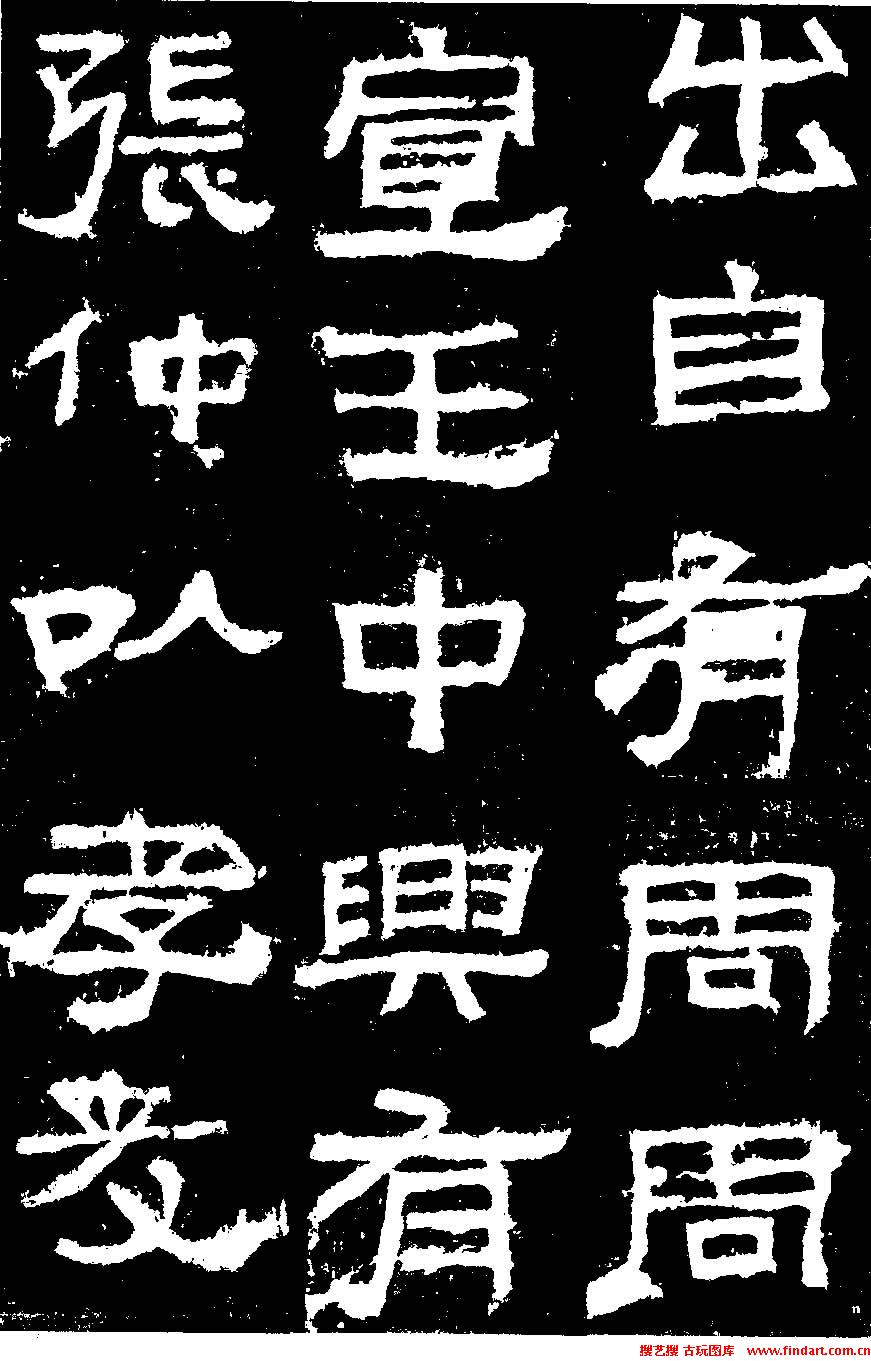 出自有周周
宣王中興有
張仲以孝友
搜艺搜 古玩图库 www.findart.com.cn